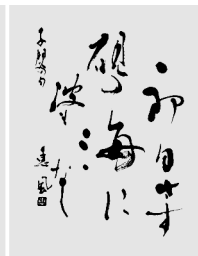 初日さす
硯の海に
波もなし
子規の句